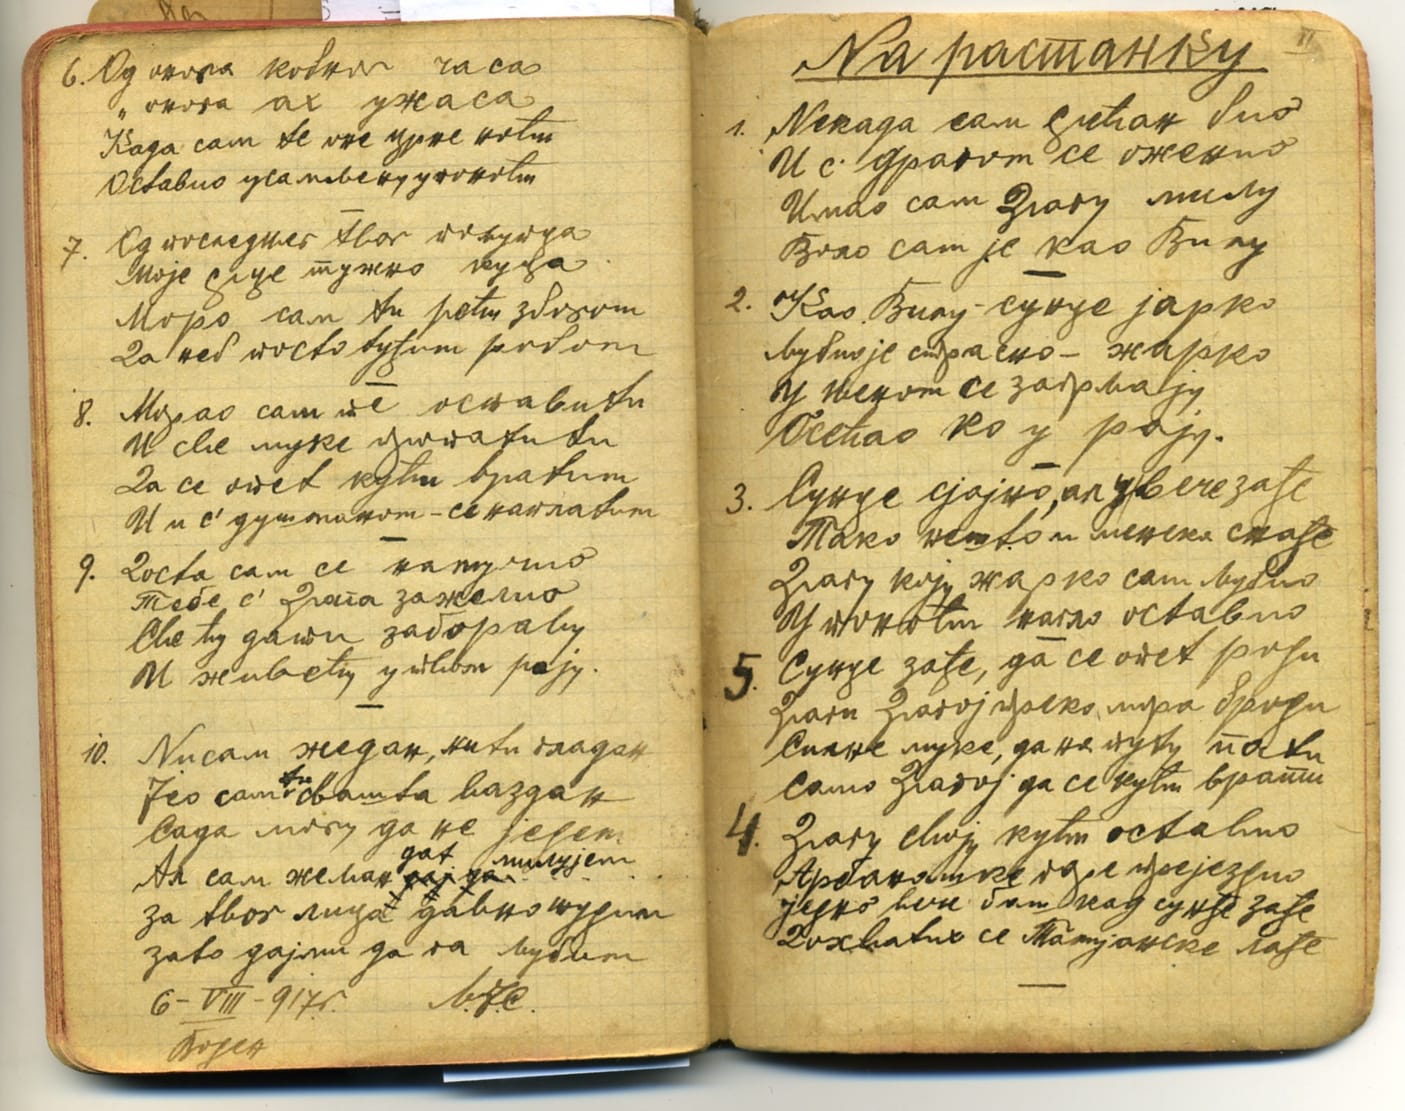 6. Од онога кобног часа
„ онога ах ужаса
Када сам те оне црне ноћи
Оставио усамљену у помоћи
7. Од последњег твог пољупца
Моје срце тужно куца
Моро сам ти рећи збогом
За неб посто туђим робом
8. Морао сам те оставити
И све муке препатити
Да се опет кући вратим
И и с' душманом – се наплатим
9. Доста сам се намучио
Тебе с' Злата зажелио
Све ћу дати заборављу
И живећу у твом рају.
10. Нисам жедан, нити гладан
Јео сам свашта вазdan
ти
Сада могу да не једем
Ал сам жељан
дат милујем
за твог лица давно жудим
зато дајми да га љубим
6 – VIII – 917 г. М.Ј.С.
Бођен
II
На растанку
1. Некада сам срећан био
И с' драгом се оженио
Имао сам Злату милу
Воло сам је као Вилу
2. Као Вилу – сунце јарко
љубио је страсно – жарко
У њеном се загрљају
Осећао ко у рају.
3. Сунце сјајно, ал увече зађе
Тако нешто и менека снађе
Злату коју жарко сам љубио
У поноћи нагло оставио
5. Сунце зађе, да се опет роди
Злати Златој преко мора броди
Силне муке, да на путу пати
Само Златој да се кући врати
4. Злату своју кући оставио
Арбанашке горе прејездио
једно вече бам кад сунце зађе
Дохватих се Талијанске лађе